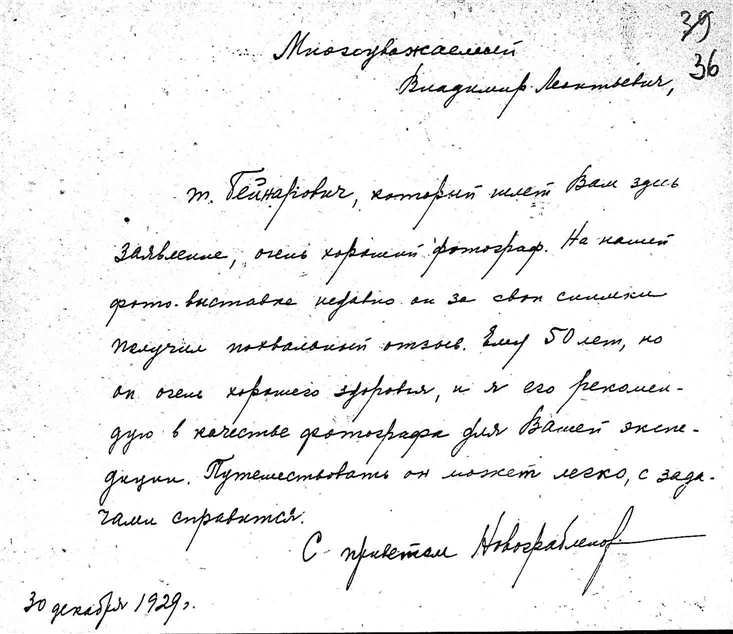 39
36
Многоуважаемый
Владимир Леонтьевич,
т. Гейнарiович, который шлет Вам здесь
заявление, очень хороший фотограф. На нашей
фото-выставке недавно он за свои снимки
получил похвальный отзыв. Ему 50 лет, но
он очень хорошего здоровья, и я его рекомен-
дую в качестве фотографа для Вашей экспе-
диции. Путешествовать он может легко, с зада-
чами справится.
С приветом Новограбленов
30 декабря 1929 г.